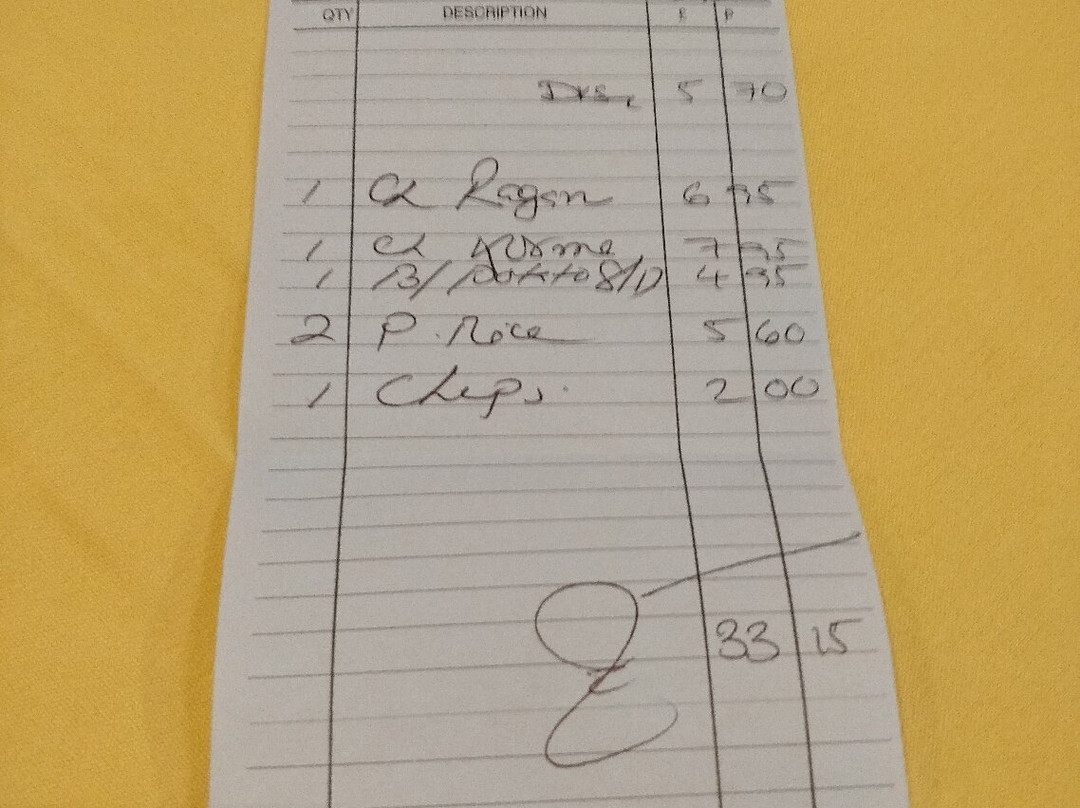 QTY DESCRIPTION £ P
Drs, 5 70
1 Ch Rogan 6 95
1 Ch Korma 7 95
1 B/potato S/D 4 95
2 P. Rice 5 60
1 Chips. 2 00
33 15